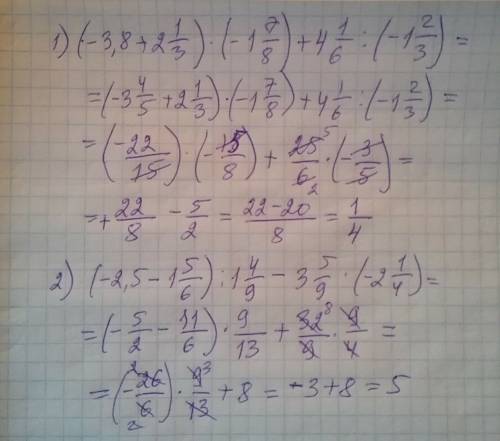 1) (-3,8 + 2 1/3) · (-1 7/8) + 4 1/6 : (-1 2/3) =
= (-3 4/5 + 2 1/3) · (-1 7/8) + 4 1/6 : (-1 2/3) =
= (-22/15) · (-15/8) + 25⁵/6₂ · (-3/5) =
= + 22/8 - 5/2 = 22-20/8 = 1/4
2) (-2,5 - 1 5/6) : 1 4/9 - 3 5/9 · (-2 1/4) =
= (-5/2 - 11/6) · 9/13 + 32⁸/9 · 9/4 =
= (-²26/6₂) · 9³/13 + 8 = -3 + 8 = 5